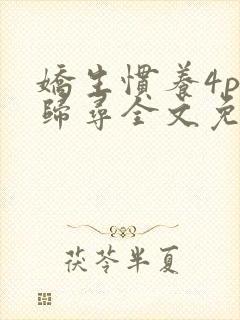 嬌生慣養4p
歸尋全文免
茯苓半夏